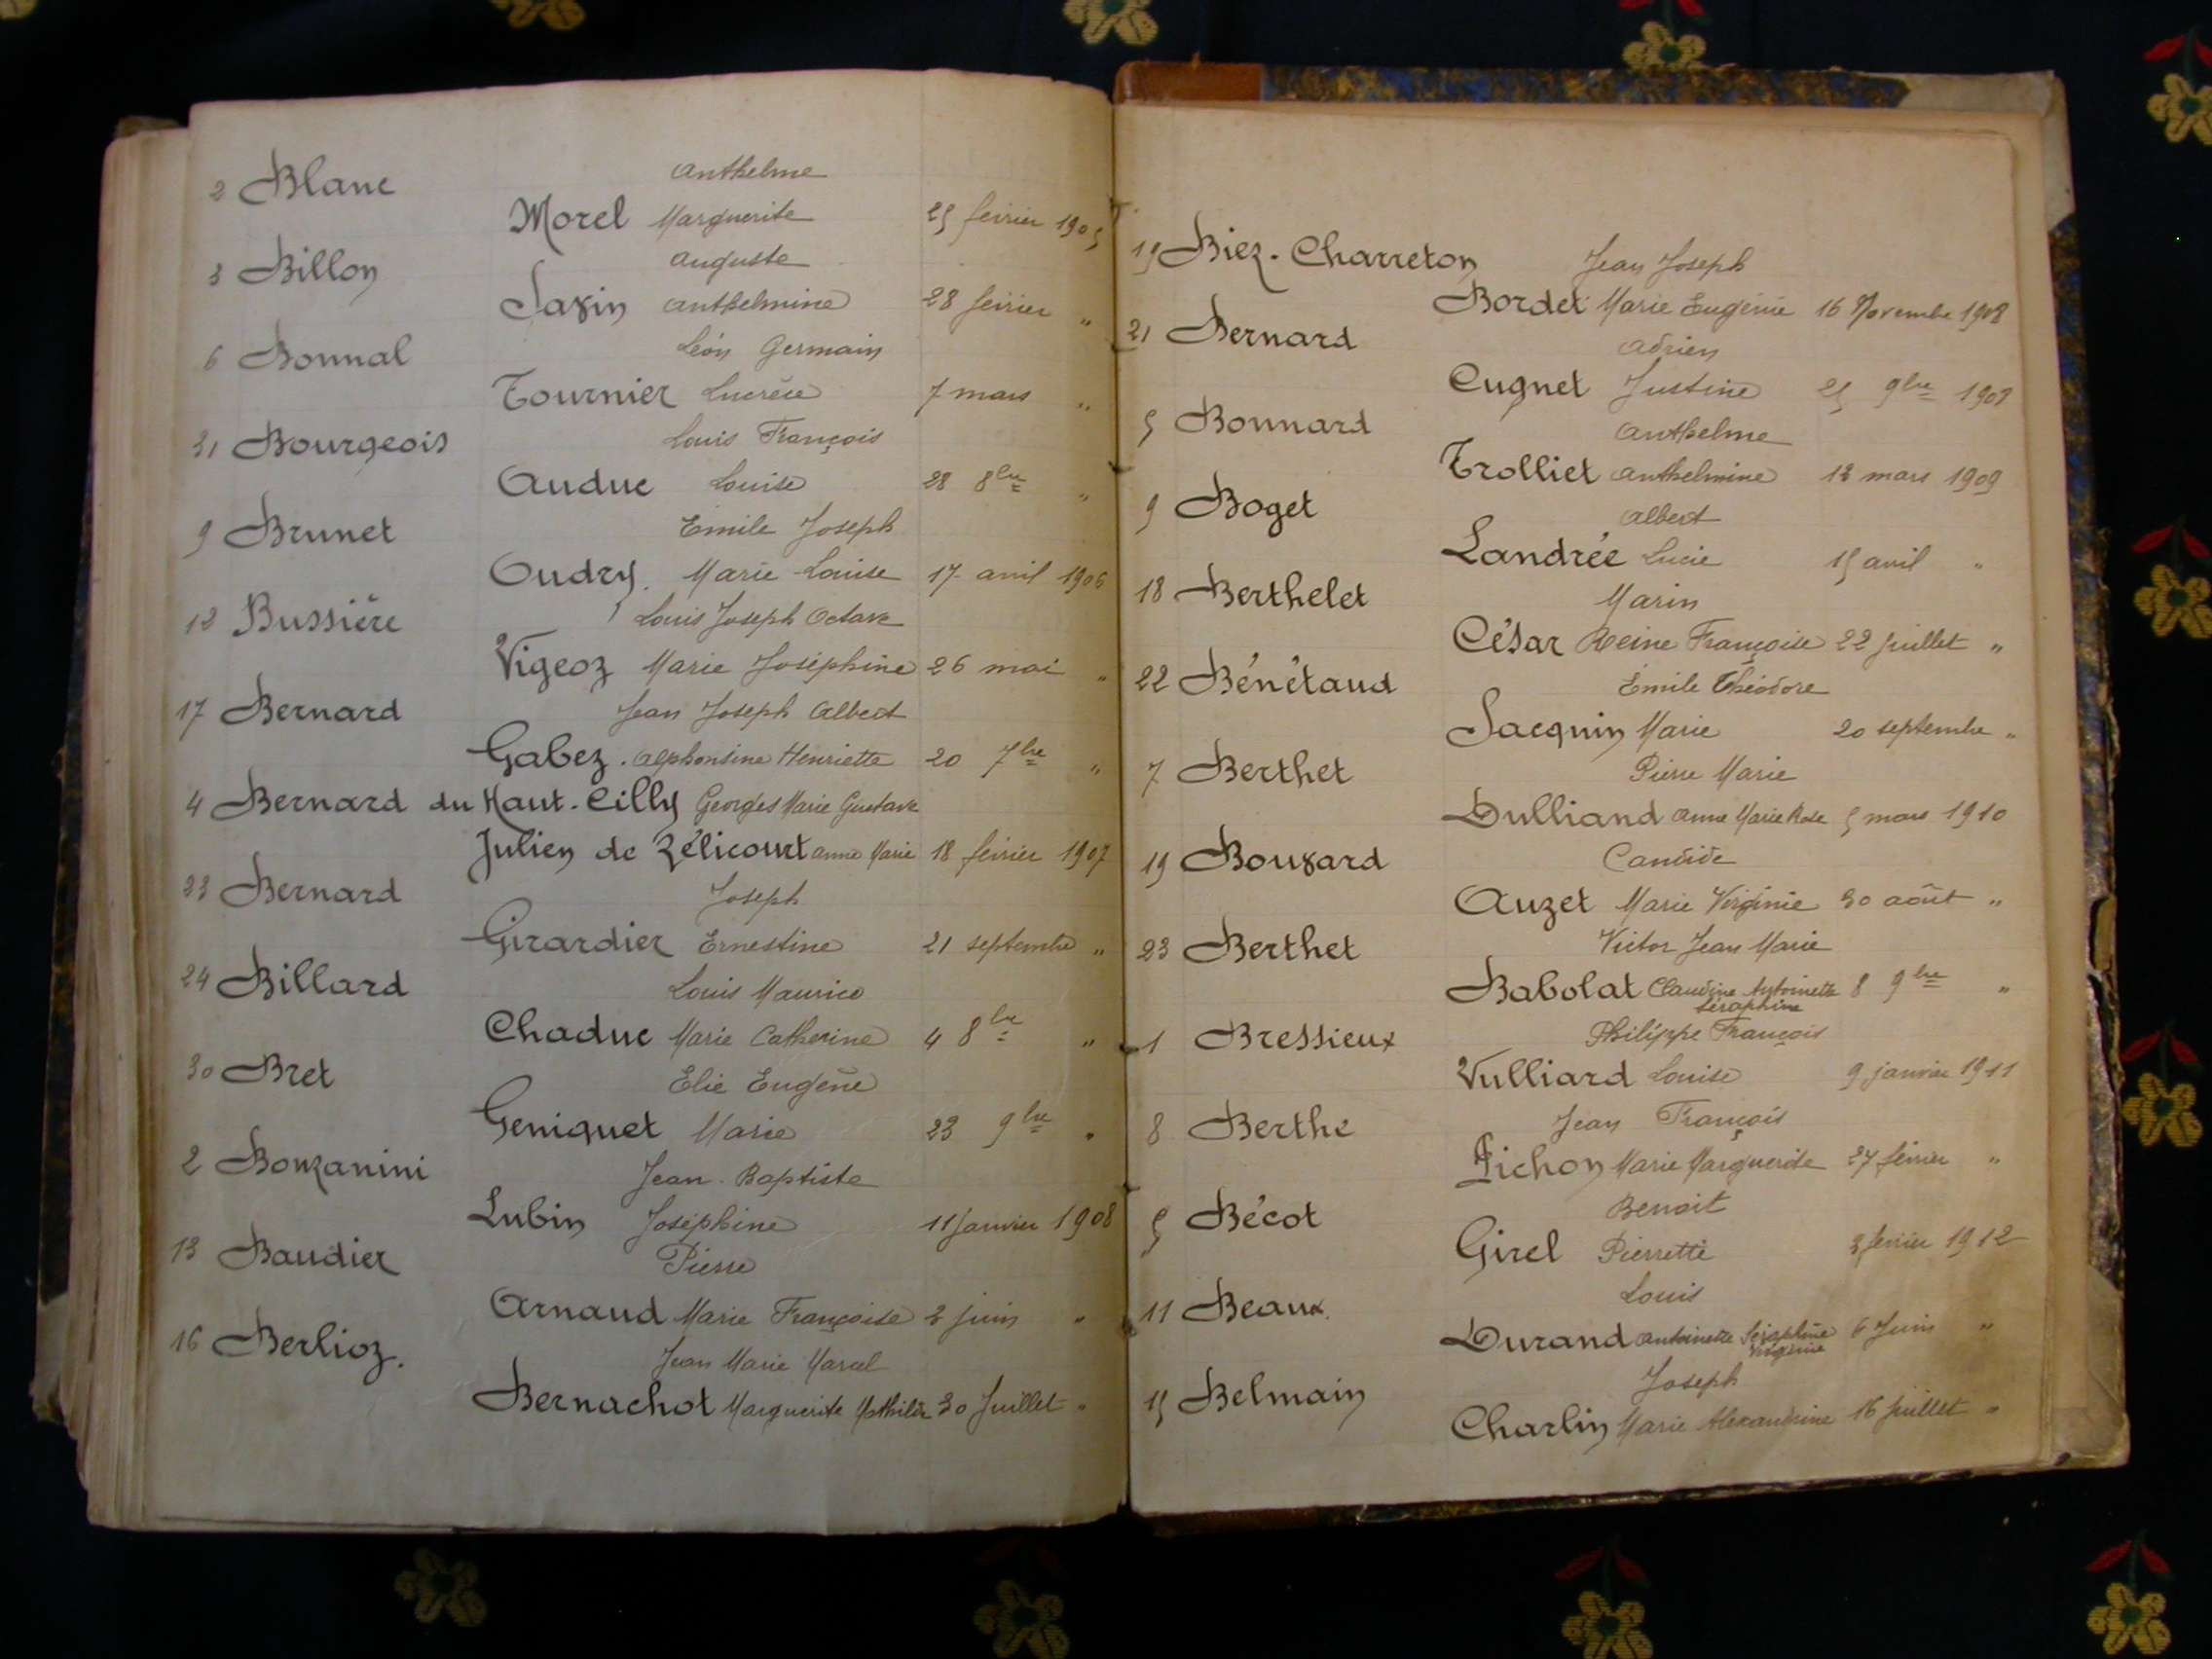 2 Blanc Anthelme
Morel Marguerite 25 février 1905
3 Billon Auguste
Savin Anthelmine 28 février "
6 Bonnal Léon Germain
Tournier Lucrèce 7 mars "
31 Bourgeois Louis François
Auduc Louise 28 8bre "
9 Brunet Emile Joseph
Oudry Marie Louise 17 avril 1906
12 Bussière Louis Joseph Octave
Vigeoz Marie Joséphine 26 mai "
17 Bernard Jean Joseph Albert
Gabez. Alphonsine Henriette 20 7bre "
4 Bernard du Haut-Cilly Georges Marie Gustave
Julien de Zélicourt Anne Marie 18 février 1907
23 Bernard Joseph
Girardier Ernestine 21 septembre "
24 Billard Louis Maurice
Chaduc Marie Catherine 4 8bre "
30 Bret Elie Eugène
Geniquet Marie 23 9bre "
2 Bonzanini Jean-Baptiste
Lubin Joséphine 11 Janvier 1908
13 Baudier Pierre
Arnaud Marie Françoise 2 juin "
16 Berlioz. Jean Marie Marcel
Bernachot Marguerite Mathilde 30 Juillet "
19 Biez-Charreton Jean Joseph
Bordet Marie Eugénie 16 Novembre 1908
21 Bernard Adrien
Cugnet Justine 25 9bre 1908
5 Bonnard Anthelme
Trolliet Anthelmine 13 mars 1909
9 Boget Albert
Landrée Lucie 15 avril "
18 Berthelet Marin
César Reine Françoise 22 juillet "
22 Bénétaud Emile Théodore
Jacquin Marie 20 septembre "
7 Berthet Pierre Marie
Dulliand Anne Marie Rose 5 mars 1910
19 Bouvard Candide
Auzet Marie Virginie 30 août "
23 Berthet Victor Jean Marie
Babolat Claudine Antoinette 8 9bre "
Séraphine
1 Bressieux Philippe François
Vulliard Louise 9 janvier 1911
8 Berthe Jean François
Pichon Marie Marguerite 27 février "
5 Bécot Benoit
Girel Pierrette 3 février 1912
11 Beaux. Louis
Durand Antoinette Séraphine 6 Juin "
15 Belmain Joseph
Charlin Marie Alexandrine 16 juillet "